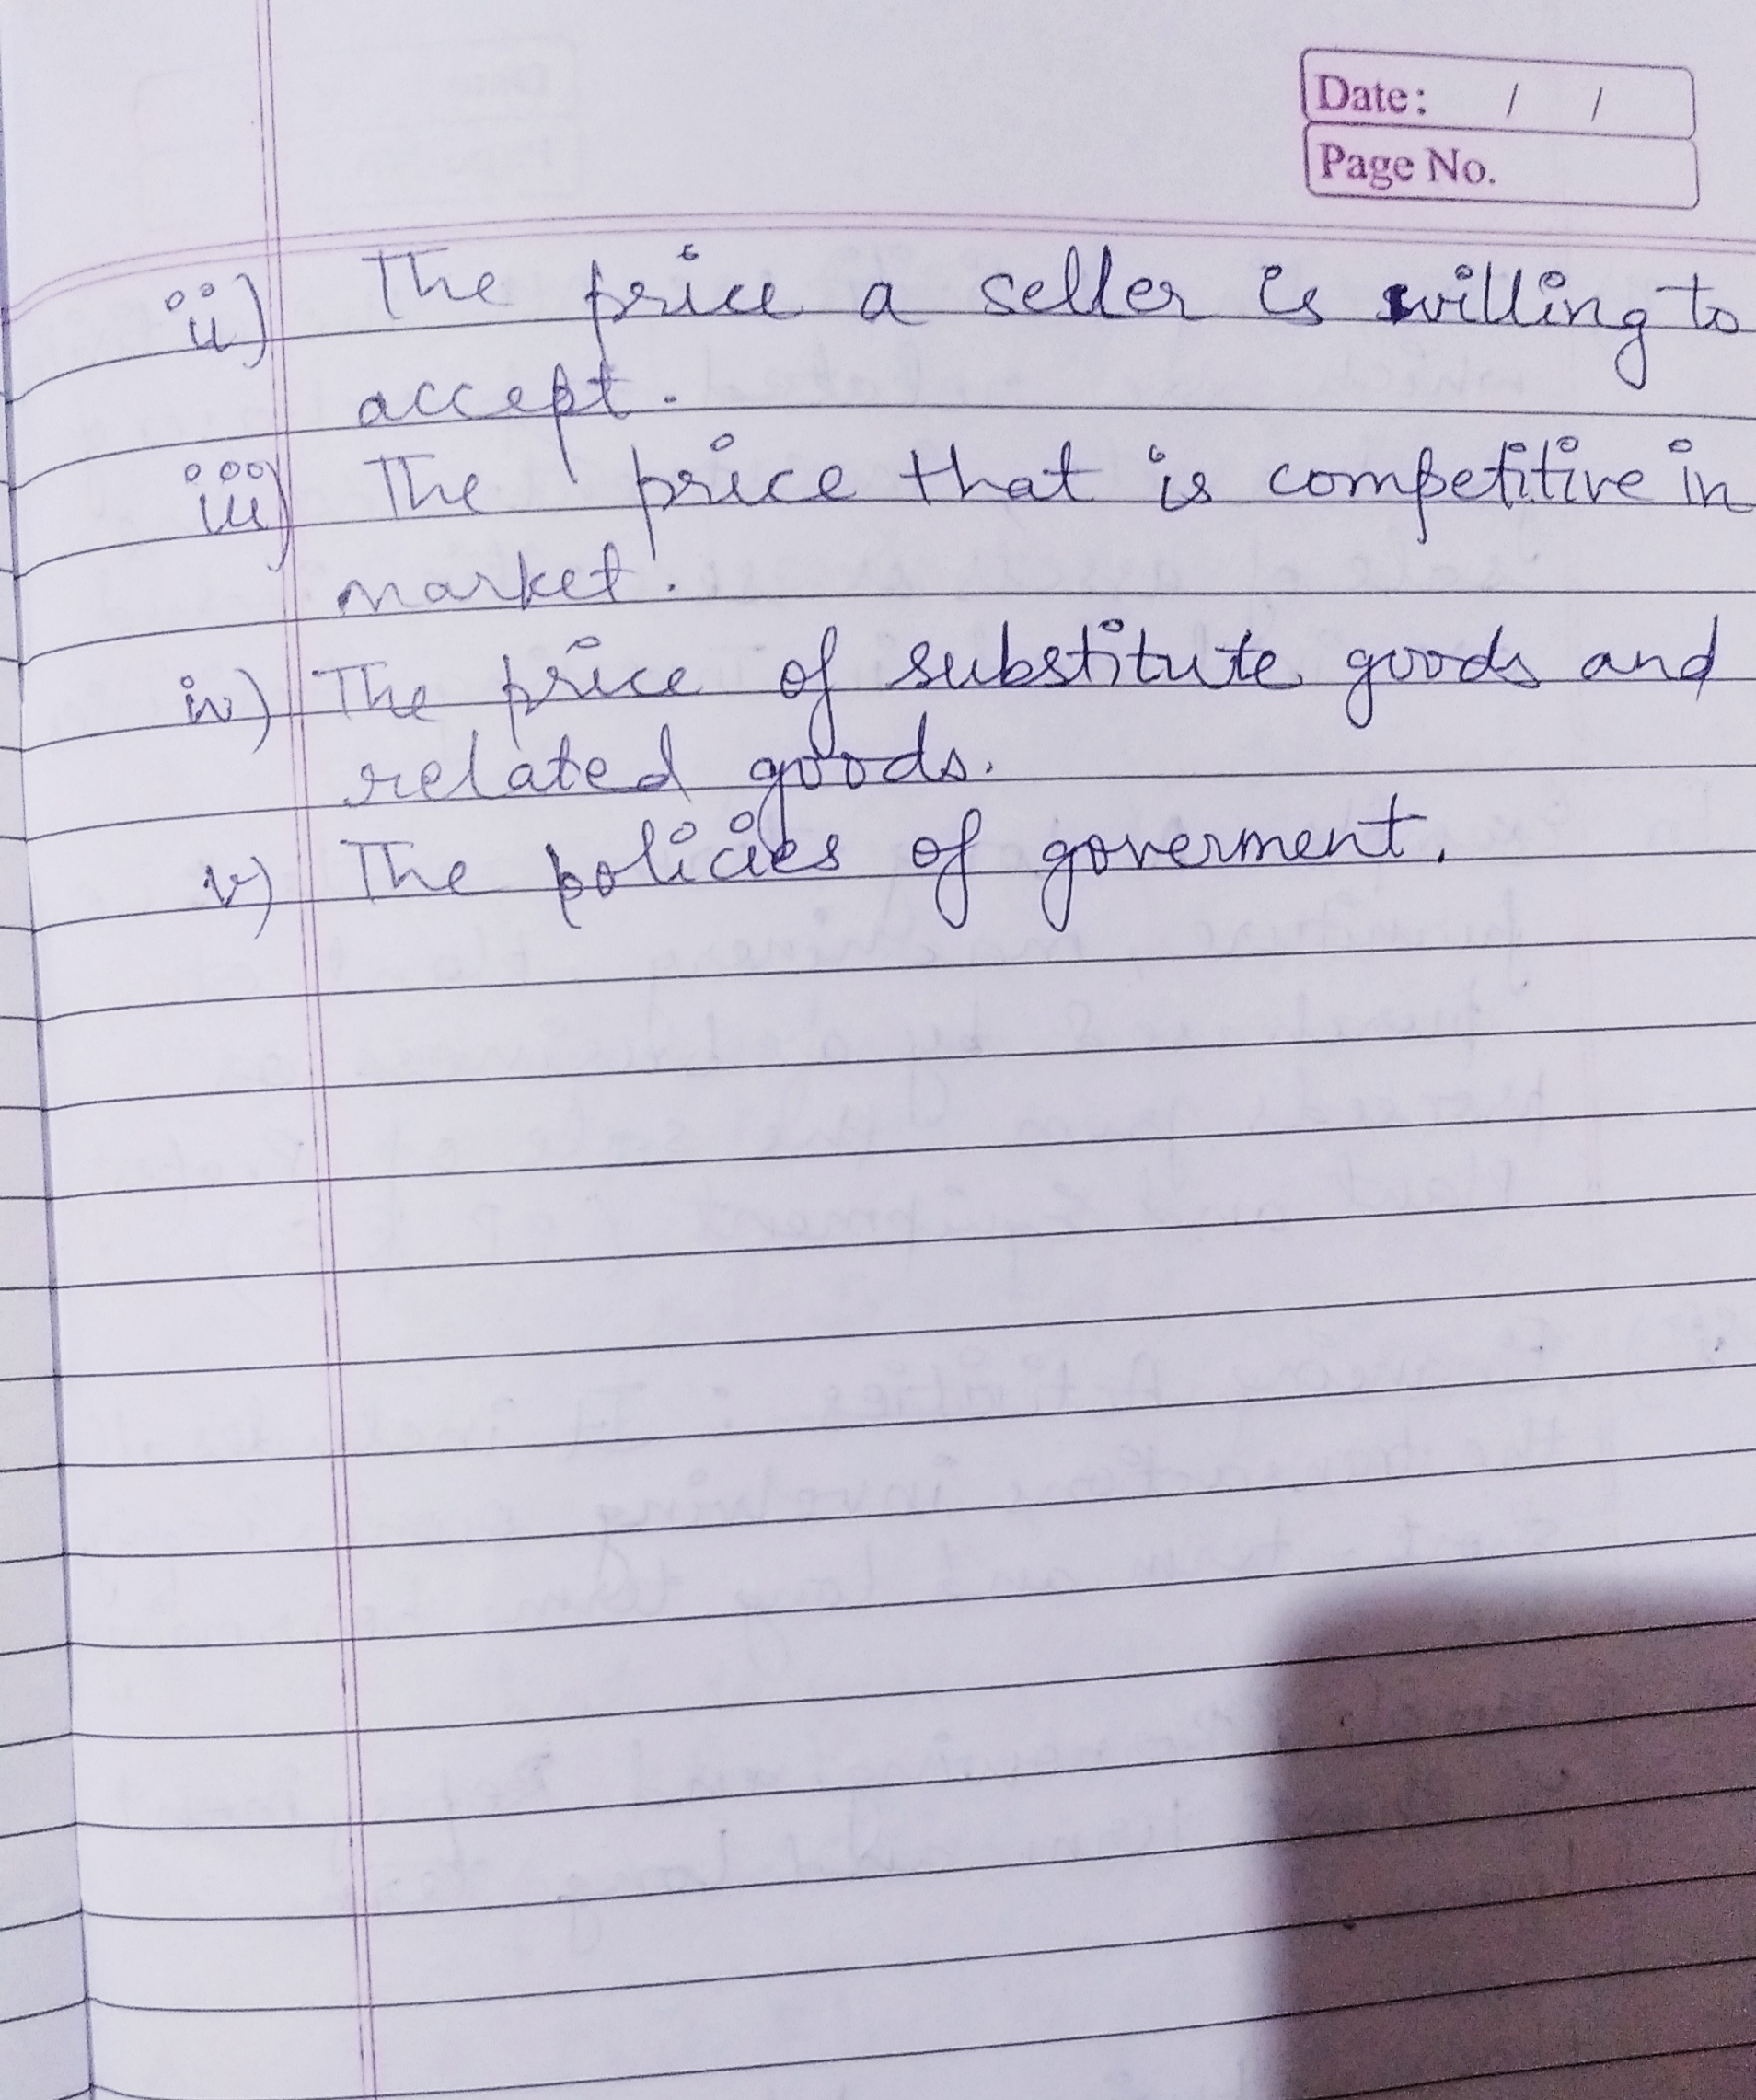 Date: / /
Page No.
ii) The price a seller is willing to
accept.
iii) The price that is competitive in
market.
iv) The price of substitute goods and
related goods.
v) The policies of goverment.